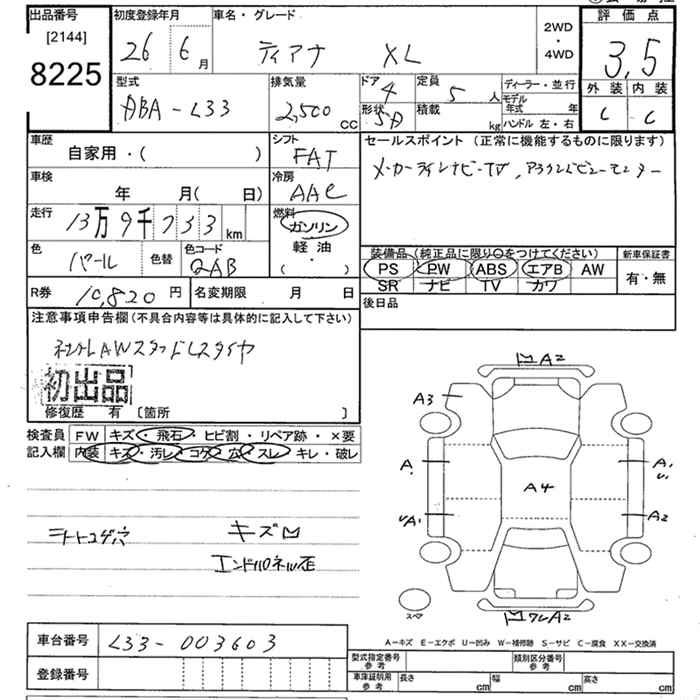 出品番号 初度登録年月 車名・グレード 評価点
[2144] 2WD
8225 26 6月 ティアナ XL 4WD 3.5
型式 排気量 ドア 4 定員 5人 ディーラー・並行 外装 内装
ABA-L33 2,500cc 形状 SD 積載 kg モデル年式 年 C C
ハンドル 左・右
車歴 シフト セールスポイント (正常に機能するものに限ります)
自家用・( ) FAT メーカーナビ-TV,アラウンドビューモニター
車検 冷房
年 月( 日) AAC
走行 13万9千753km 燃料
ガソリン
色 パール 色替 色コード QAB 軽油 装備品 (純正品に限り○をつけてください) 新車保証書
( ・ ) PS PW ABS エアB AW 有・無
R券 10,820円 名変期限 月 日 SR ナビ TV カワ
注意事項申告欄(不具合内容等は具体的に記入して下さい) 後日品
AWスタッドレスタイヤ
初出品
修復歴 有 [箇所 ]
検査員 FW キズ・飛石・ヒビ割・リペア跡・×要
記入欄 内装 キズ・汚レ・コゲ・穴・スレ・キレ・破レ
シートコゲ穴 キズ凹
エンドパネル歪
A2
A3
A A4 A1 U
UA1 A2
スペア
A2
A－キズ E－エクボ U－凹み W－補修跡 S－サビ C－腐食 XX－交換済
車台番号 L33-003603
型式指定番号 参考 類別区分番号 参考
登録番号 車庫証明用 参考 長さ cm 幅 cm 高さ cm